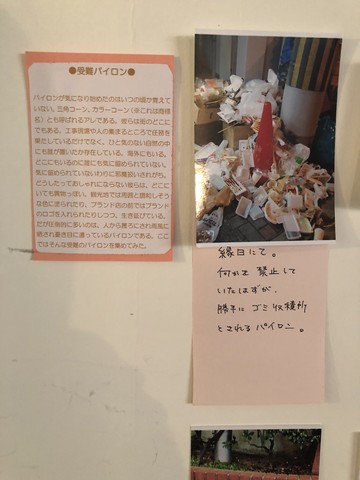 ●受難パイロン●
パイロンが気になり始めたのはいつの頃か覚えて
いない。三角コーン、カラーコーン(※これは商標
名)とも呼ばれるアレである。彼らは街のどこに
でもある。工事現場や人の集まるところで任務を
果たしているだけでなく、ひと気のない自然の中
にも誰が置いたか存在している。海外にもいる。
どこにもいるのに誰にも気に留められていない。
気に留められていないわりに邪魔扱いされがち。
どうしたっておしゃれにならない彼らは、どこに
いても異物っぽい。観光地では周囲と調和しそう
な色に塗られたり、ブランド店の前ではブランド
のロゴを入れられたりしつつ、生き延びている。
だが圧倒的に多いのは、人から蔑ろにされ雨風に
晒され憂き目に遭っているパイロンである。ここ
ではそんな受難のパイロンを集めてみた。
縁日にて。
何かを禁止して
いたはずが、
勝手にゴミ収積所
とされるパイロン。